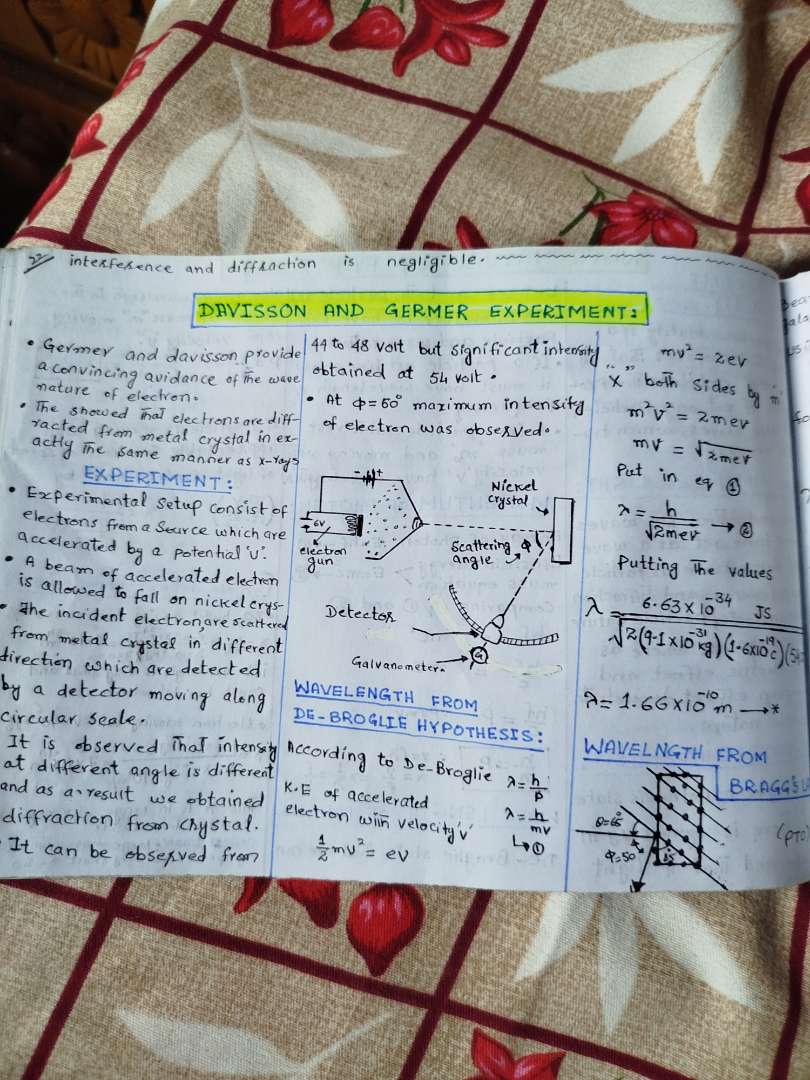 22 interference and diffraction is negligible.
DAVISSON AND GERMER EXPERIMENT:
• Germer and davisson provide
a convincing avidance of the wave
nature of electron.
• The showed that electrons are diff-
racted from metal crystal in ex-
actly the same manner as x-rays
EXPERIMENT:
• Experimental setup consist of
electrons from a Source which are
accelerated by a potential 'v'.
• A beam of accelerated electron
is allowed to fall on nickel crys-
• The incident electron, are scattered
from metal crystal in different
direction which are detected
by a detector moving along
circular scale.
It is observed that intensity
at different angle is different
and as a result we obtained
diffraction from Chystal.
• It can be observed from
44 to 48 volt but significant intensity
obtained at 54 volt.
• At Φ=50° maximum intensity
of electron was observed.
- +
6V
electron
gun
Nickel
Crystal
Scattering Φ
angle
Detector
G
Galvanometer.
WAVELENGTH FROM
DE-BROGLIE HYPOTHESIS:
According to De-Broglie λ=h/p
K.E of accelerated λ=h/mv
electron with velocity 'v' ↳①
1/2 mv² = ev
mv² = 2ev
"X" both sides by m
m²v² = 2mev
mv = √2mev
Put in eq ①
λ = h/√2mev → ②
Putting the values
λ = 6.63 x 10⁻³⁴ JS
√2(9.1x10⁻³¹kg)(1.6x10⁻¹⁹c)(
λ= 1.66 x 10⁻¹⁰ m → *
WAVELNGTH FROM
BRAGG'S
(PTO)
θ=65°
Φ=50°